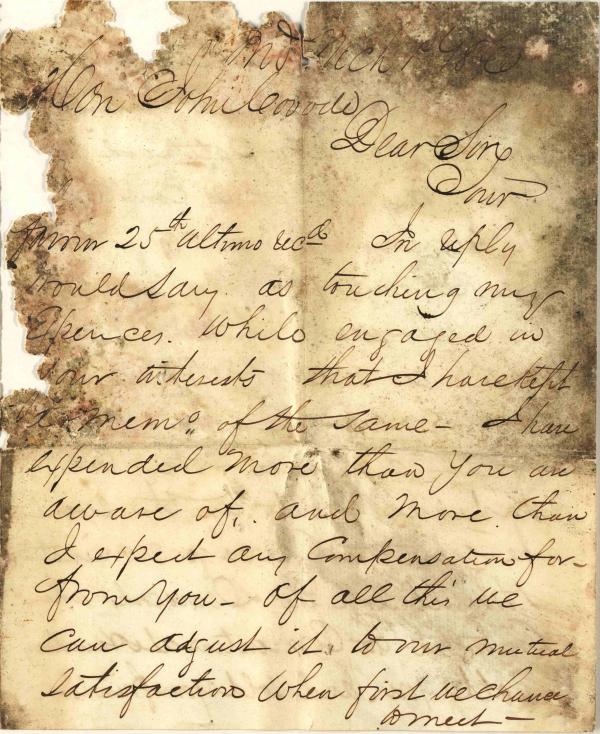 Hon John Covode
Dear Sir
Your
favor 25th altimo recd In reply
would say as touching my
Expences. While engaged in
your interests that I have kept
a memo of the same - I have
expended More than You are
aware of, and More than
I expect any Compensation for-
from You - of all this we
can adjust it to our mutual
satisfaction When first we chance
to meet -